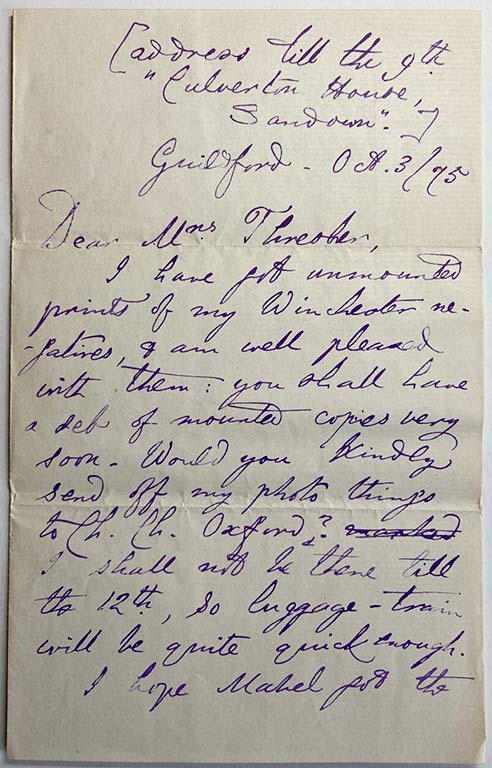 [address till the 9th
"Culverton House,
Sandown".]
Guildford - Oct. 3/75
Dear Mrs
I have got unmounted
prints of my Winchester ne-
-gatives, & am well pleased
with them: you shall have
a set of mounted copies very
soon - Would you kindly
send off my photo things
to Ch. Ch. Oxford? marked
I shall not be there till
the 12th, so luggage-train
will be quite quick enough.
I hope Mabel got the